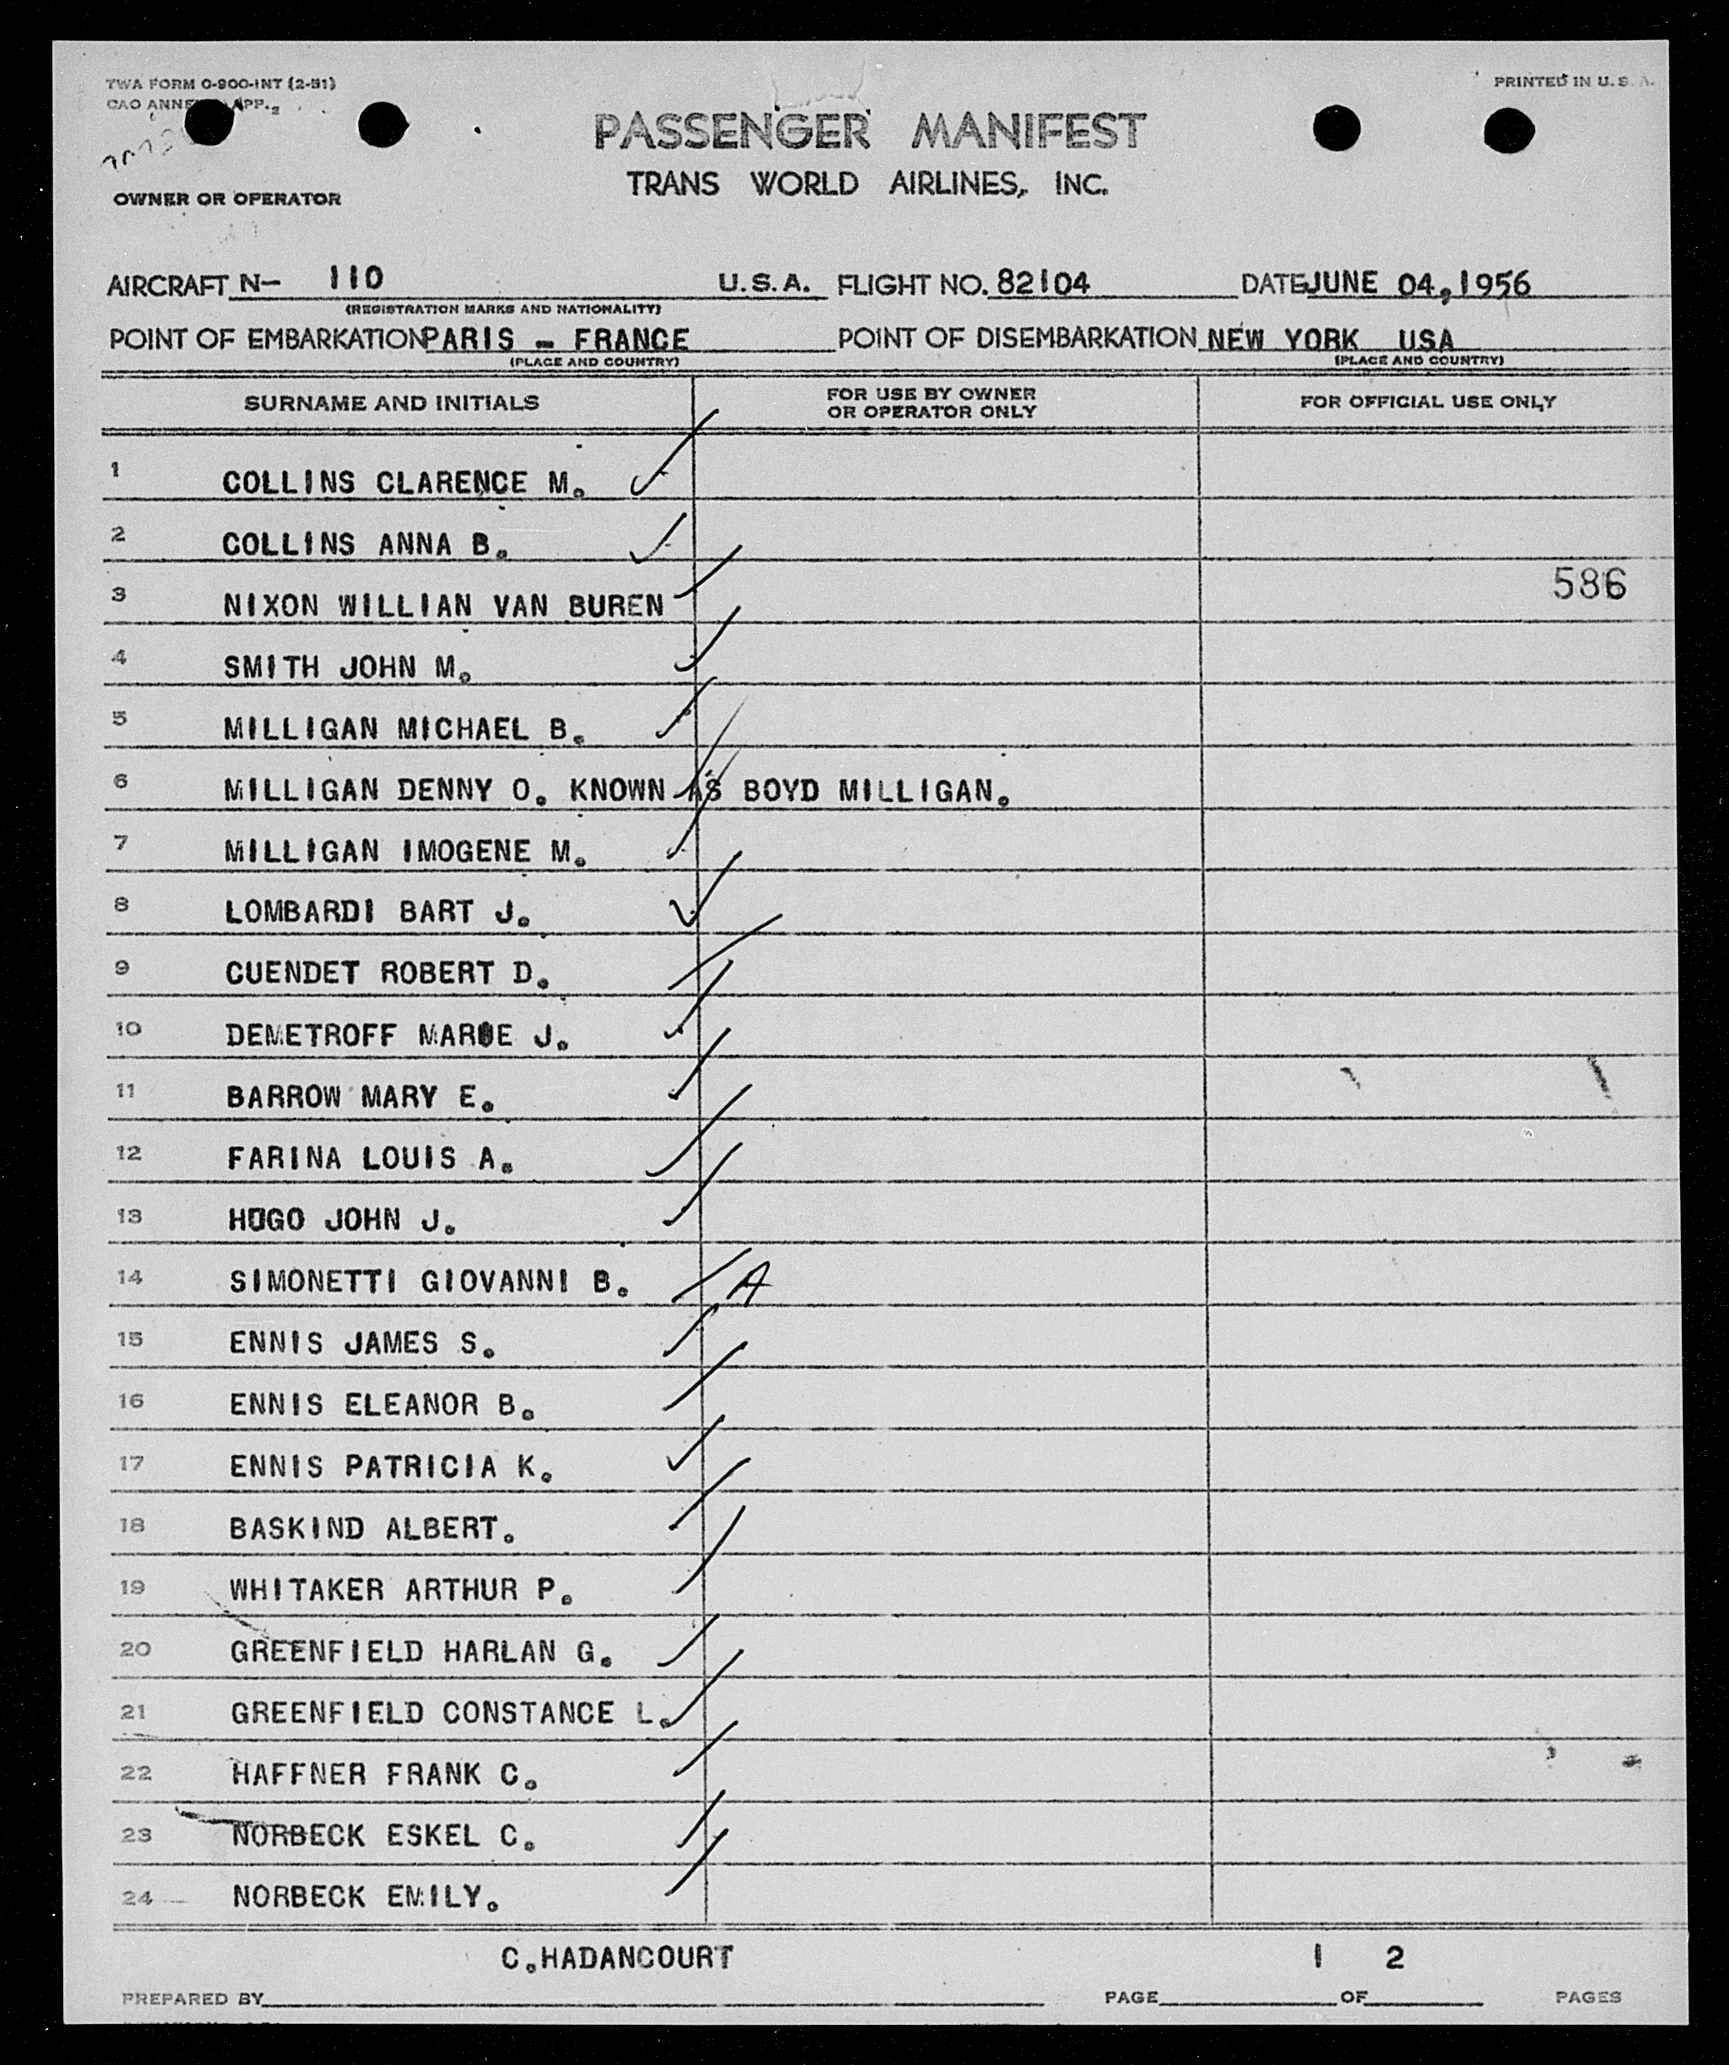 TWA FORM O-900-INT (2-51)
PRINTED IN U. S. A.
PASSENGER MANIFEST
TRANS WORLD AIRLINES, INC.
OWNER OR OPERATOR
AIRCRAFT N- 110 U.S.A. FLIGHT NO. 82104 DATE JUNE 04,1956
(REGISTRATION MARKS AND NATIONALITY)
POINT OF EMBARKATION PARIS - FRANCE POINT OF DISEMBARKATION NEW YORK USA
(PLACE AND COUNTRY) (PLACE AND COUNTRY)
SURNAME AND INITIALS FOR USE BY OWNER OR OPERATOR ONLY FOR OFFICIAL USE ONLY
1 COLLINS CLARENCE M.
2 COLLINS ANNA B.
586
3 NIXON WILLIAN VAN BUREN
4 SMITH JOHN M.
5 MILLIGAN MICHAEL B.
6 MILLIGAN DENNY O. KNOWN AS BOYD MILLIGAN.
7 MILLIGAN IMOGENE M.
8 LOMBARDI BART J.
9 CUENDET ROBERT D.
10 DEMETROFF J.
11 BARROW MARY E.
12 FARINA LOUIS A.
13 HUGO JOHN J.
14 SIMONETTI GIOVANNI B. A
15 ENNIS JAMES S.
16 ENNIS ELEANOR B.
17 ENNIS PATRICIA K.
18 BASKIND ALBERT.
19 WHITAKER ARTHUR P.
20 GREENFIELD HARLAN G.
21 GREENFIELD CONSTANCE L.
22 HAFFNER FRANK C.
23 NORBECK ESKEL C.
24 NORBECK EMILY.
C.HADANCOURT 1 2
PREPARED BY PAGE OF PAGES